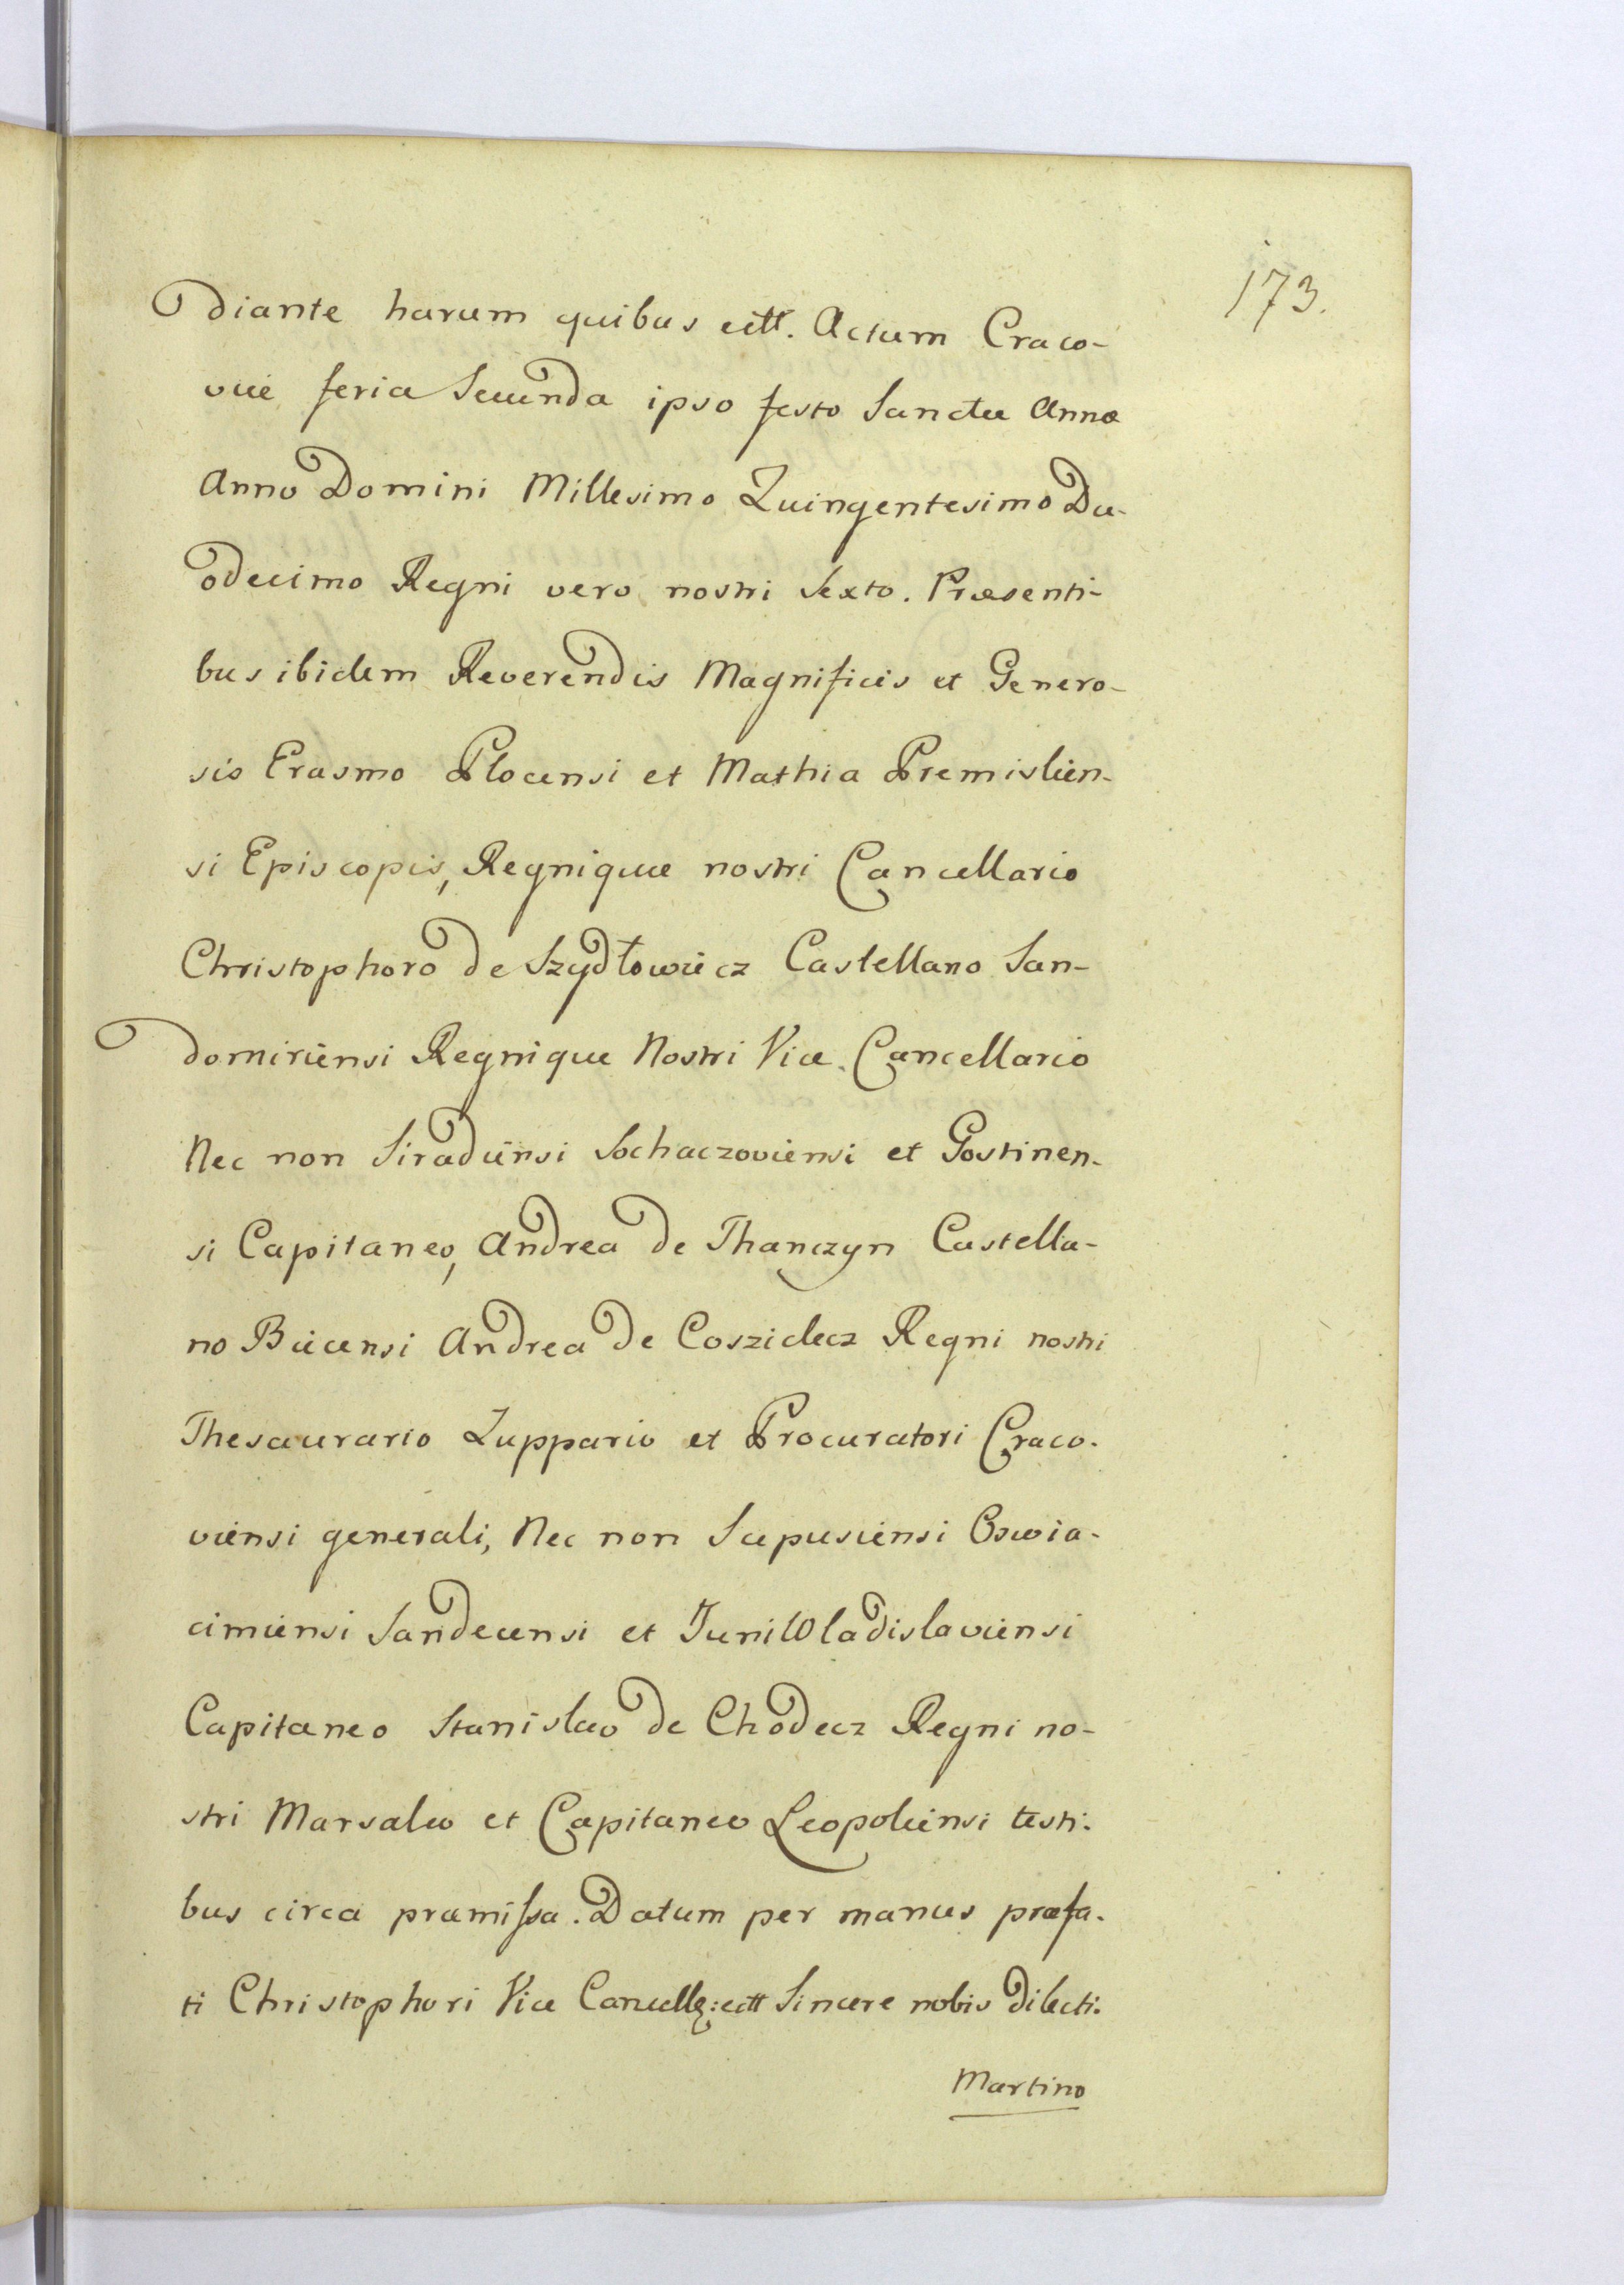 173.
diante harum quibus ettt. Actum Craco-
viæ feria Secunda ipso festo Sanctæ Annæ
Anno Domini Millesimo Quingentesimo Du-
odecimo Regni vero nostri Sexto. Præsenti-
bus ibidem Reverendis Magnificis et Genero-
sis Erasmo Plocensi et Mathia Premislien-
si Episcopis, Regnique nostri Cancellario
Christophoro de Szydłowiecz Castellano San-
domiriensi Regnique Nostri Vice-Cancellario
Nec non Siradiensi Sochaczoviensi et Gostinen-
si Capitaneo, Andrea de Thanczyn Castella-
no Biecensi Andrea de Coszielecz Regni nostri
Thesaurario Zuppario et Procuratori Craco-
viensi generali, Nec non Scepusiensi Oswia-
cimiensi Sandecensi et JuniWladislaviensi
Capitaneo Stanislao de Chodecz Regni no-
stri Marsalco et Capitaneo Leopoliensi testi-
bus circa præmissa. Datum per manus præfa-
ti Christophori Vice Cancell: ettt Sincere nobis Dilecti.
Martino